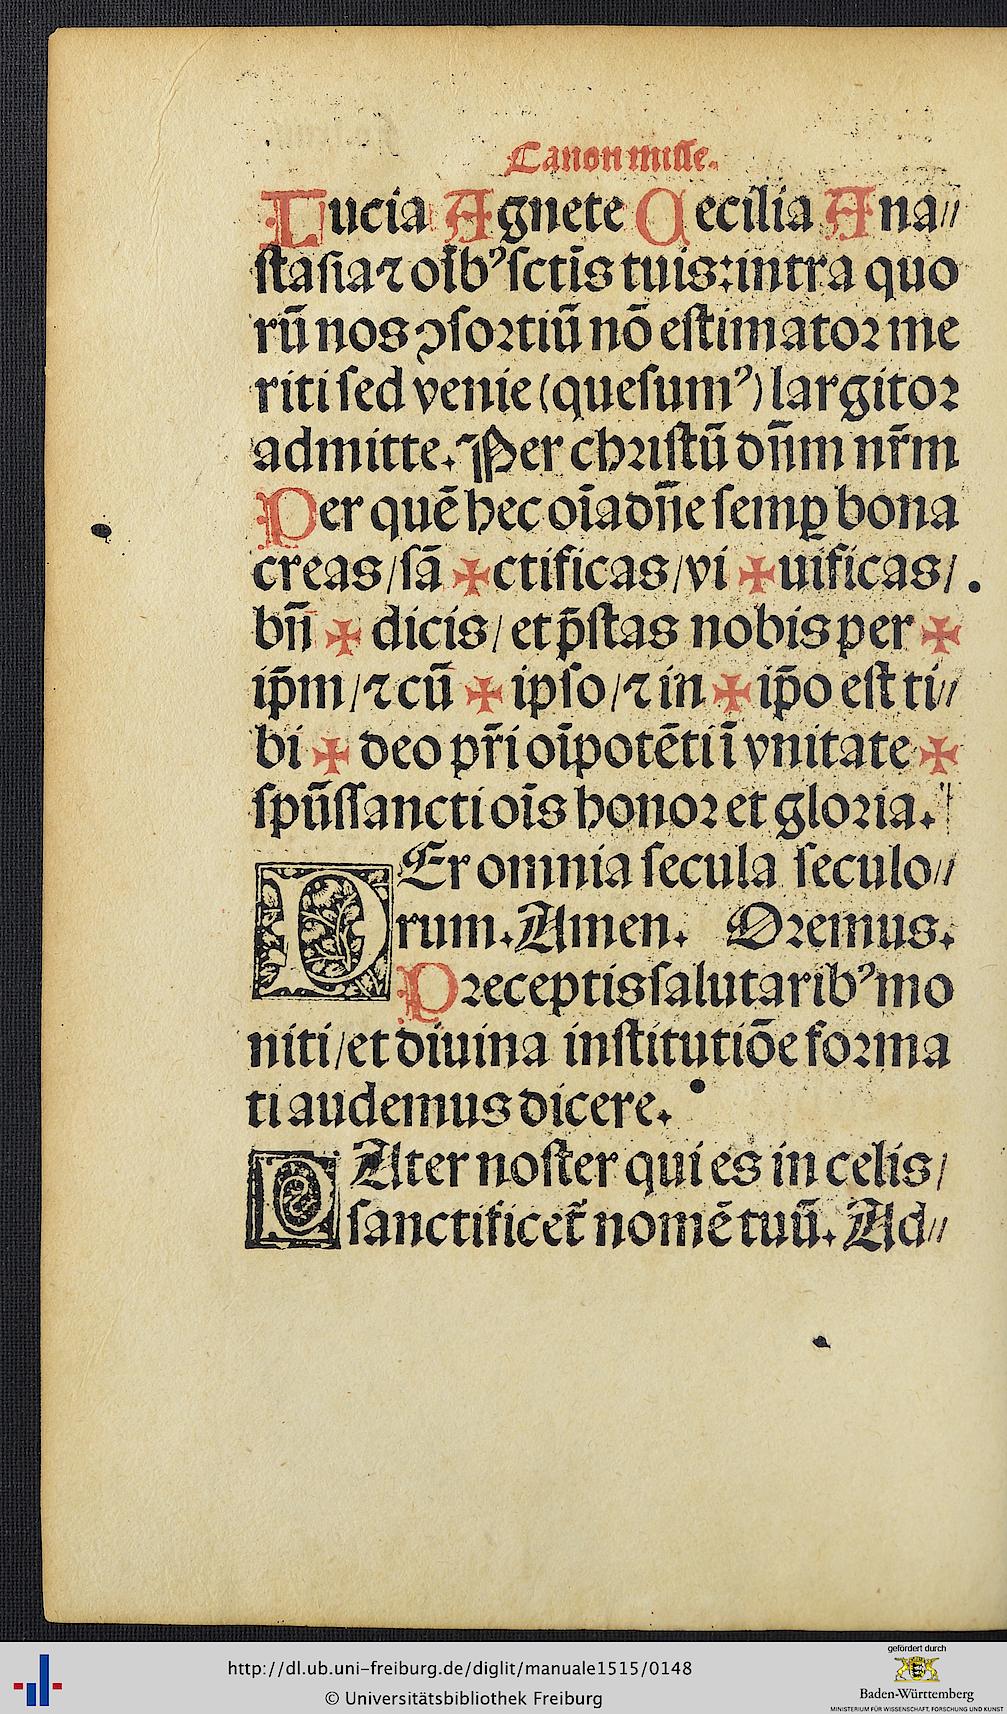 Canon misse.
Lucia Agnete Cecilia Ana⸗
ſtaſia ⁊ oı̄bꝰ ſctīs tuis: intra quo
rū nos ꝯſoꝛtiū nō eſtimatoꝛ me
riti ſed venie (queſumꝰ) largitoꝛ
admitte. Per chꝛiſtū dn̄m nr̄m
Per quē hec oīa dn̄e ſemꝑ bona
creas/ſā ✠ ctificas/vi ✠ uificas/.
bn̄ ✠ dicis/ et p̄ſtas nobis per ✠
ip̄m/⁊ cū ✠ ipſo/⁊ in ✠ ip̄o eſt ti⸗
bi ✠ deo pr̄i oīpotēti ī vnitate ✠
ſpūſſancti oīs honoꝛ et gloꝛia.
PEr omnia ſecula ſeculo⸗
rum. Amen. Oꝛemus.
Pꝛeceptis ſalutaribꝰ mo
niti/et diuina inſtitutiōe foꝛma
ti audemus dicere.
PAter noſter qui es in celis/
ſanctificet̄ nomē tuū. Ad⸗
http://dl.ub.uni-freiburg.de/diglit/manuale1515/0148
© Universitätsbibliothek Freiburg
gefördert durch
Baden-Württemberg
MINISTERIUM FÜR WISSENSCHAFT, FORSCHUNG UND KUNST